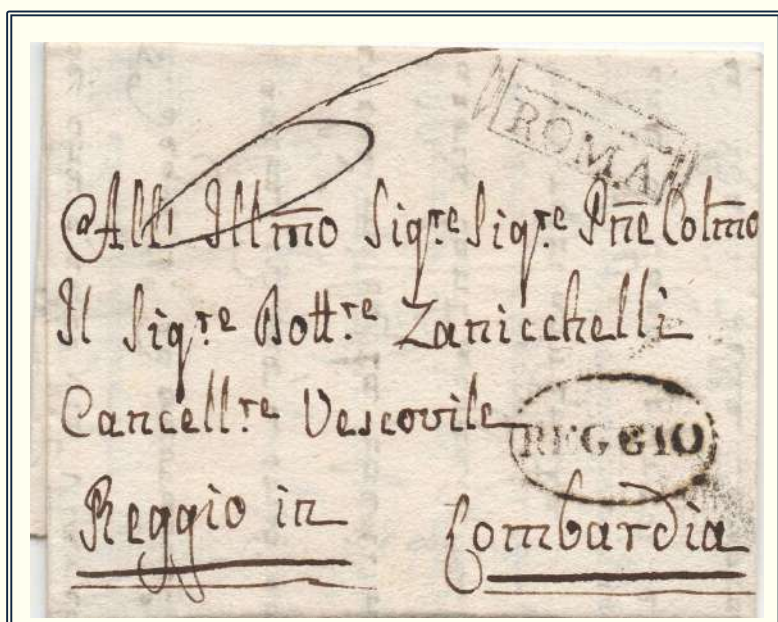 ROMA
All' Illm̃o Sigṛe Sigṛe Pr̃ne Colm̃o
Il Sigṛe Dottṛe Zanicchelli
Cancellṛe Vescovile
REGGIO
Reggio in Lombardia